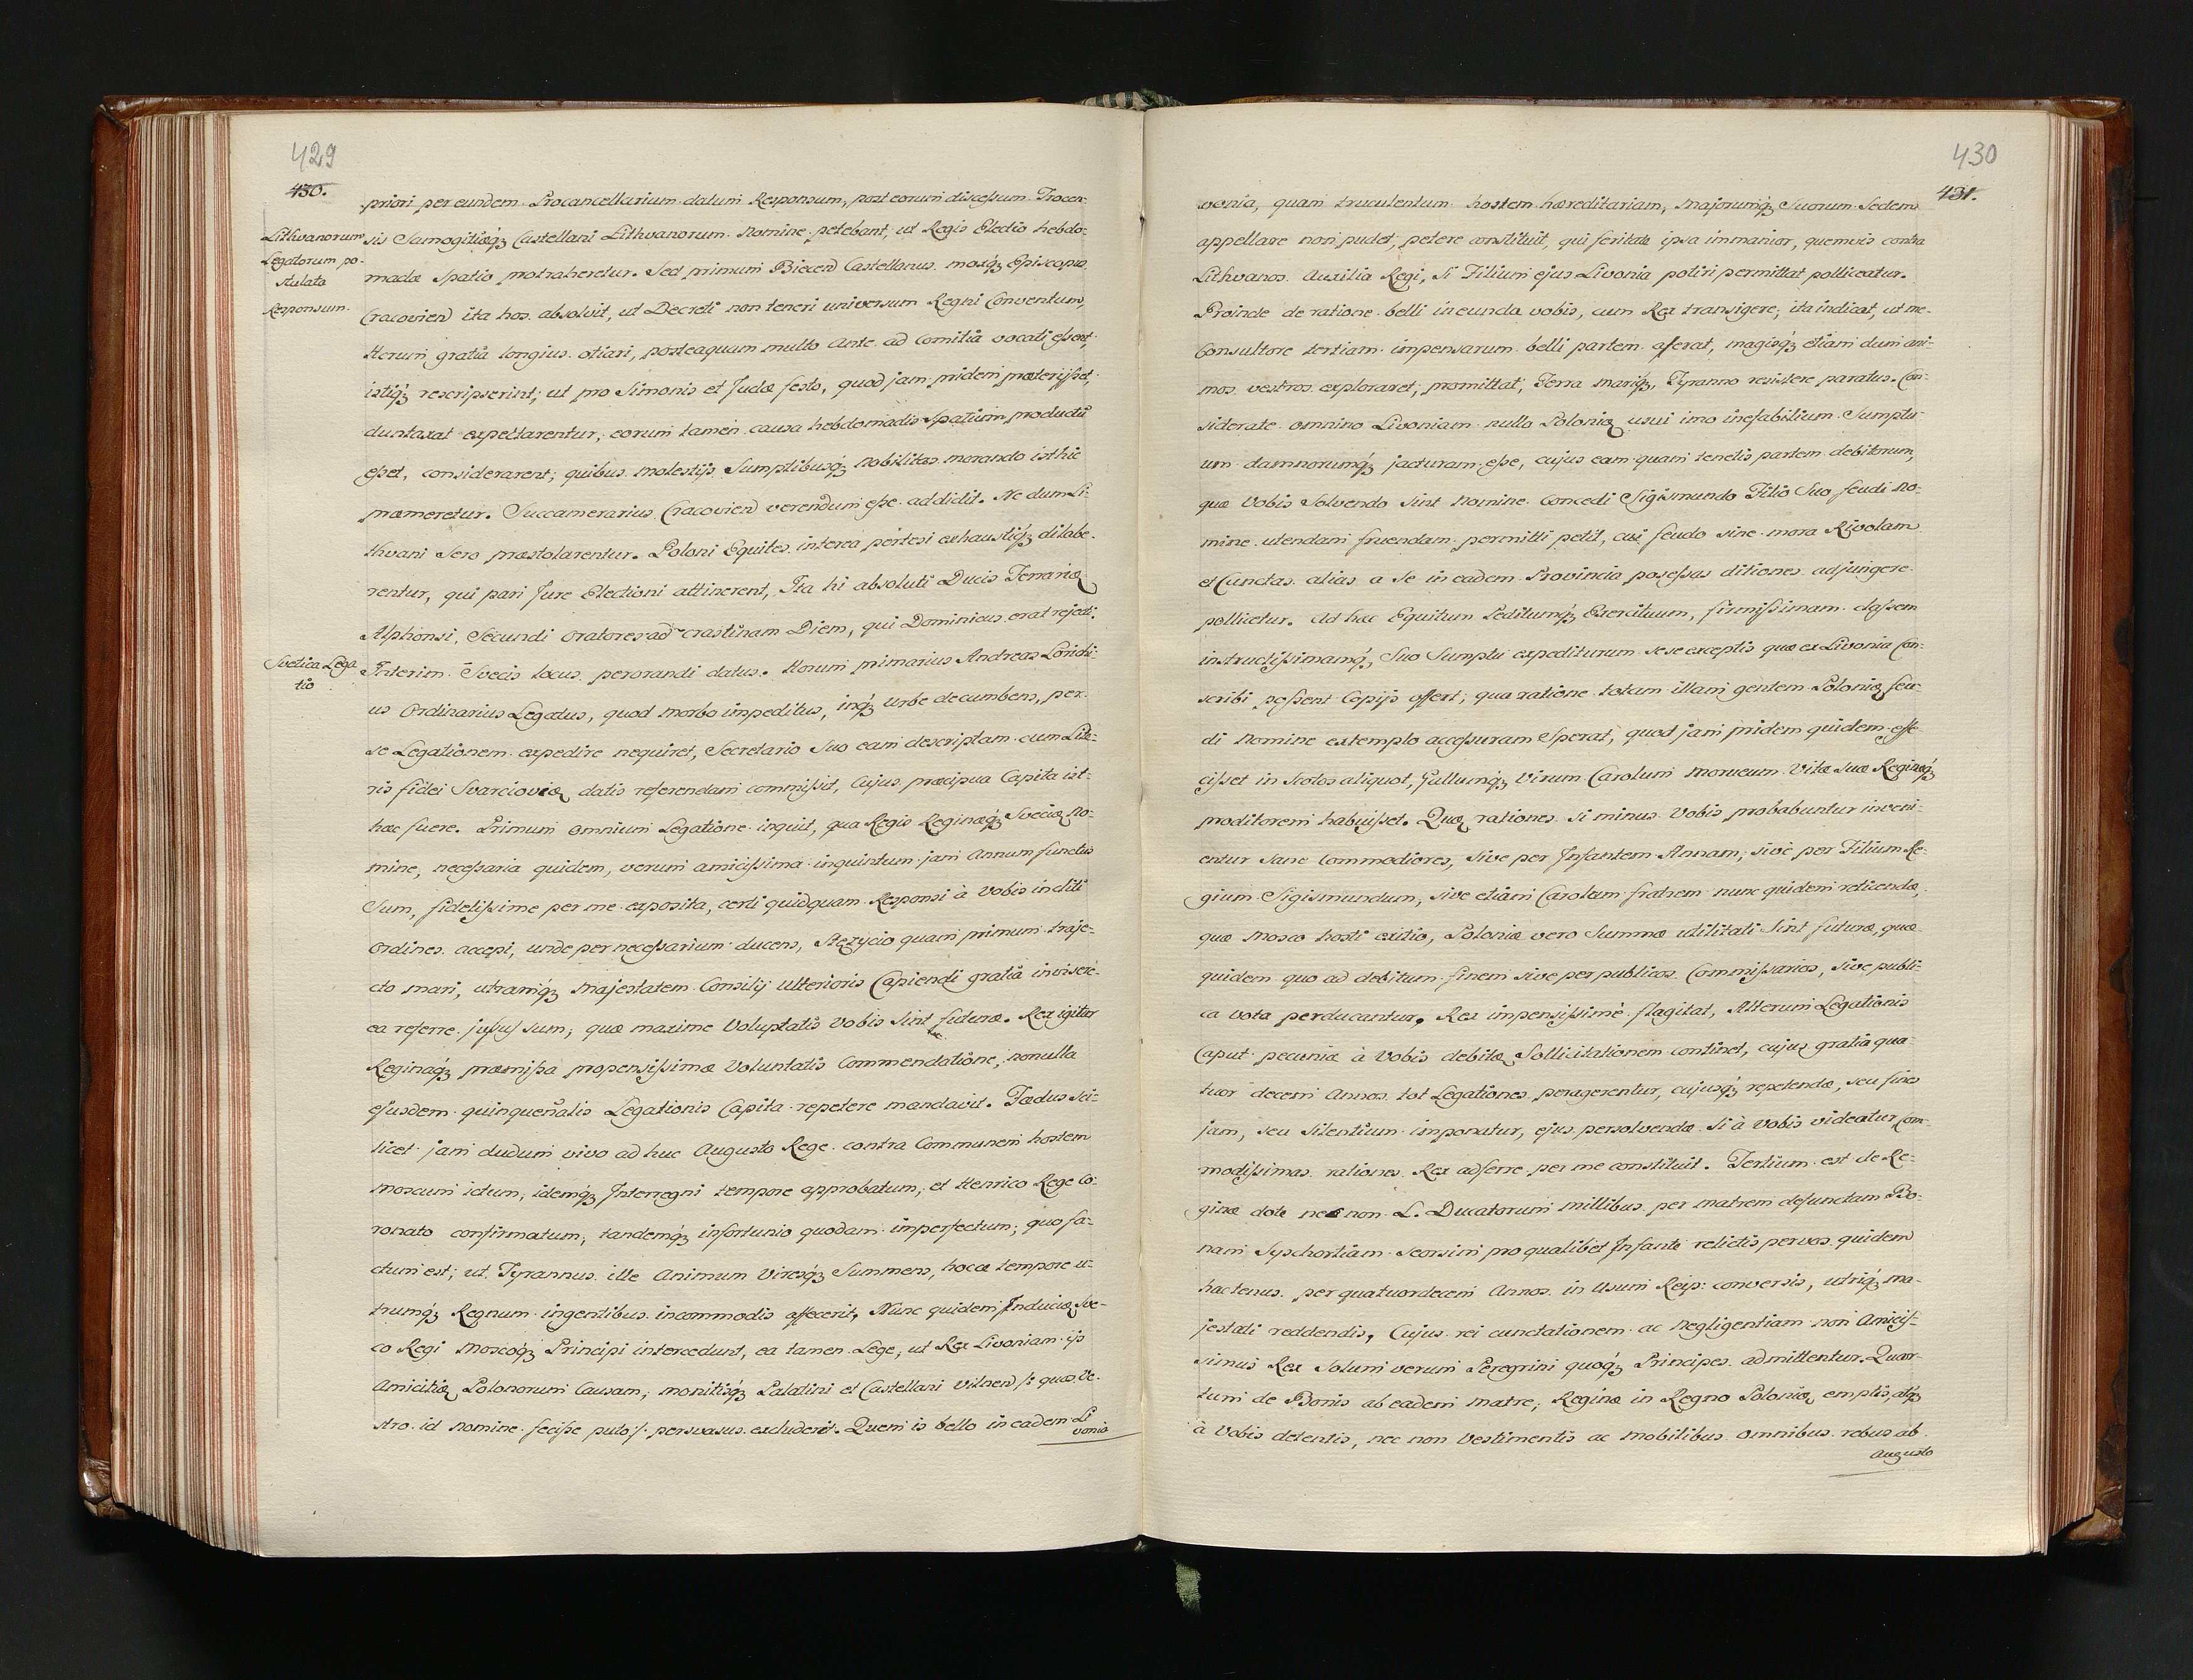 429
430.
priori per eundem Procancellarium datum Responsum, post eorum discessum Trocen-
Lithvanorum
Legatorum po-
stulata
sis Samogitiæq́ꝫ Castellani Lithvanorum Nomine petebant, ut Regis Electio hebdo-
madæ spatio protraheretur. Sed primum Biecen Castellanus moxq́ꝫ Episcopus
Responsum.
Cracovien ita hos absolvit, ut Decreti non teneri universum Regni Conventum,
Horum gratiâ longius otiari, posteaquam multo Ante ad Comitia vocati essent,
istiq́ꝫ rescripserint; ut pro Simonis et Judæ festo, quod jam pridem præterisset,
duntaxat expectarentur, eorum tamen causa hebdomadis Spatium productũ
esset, considerarent; quibus molestijs Sumptibusq́ꝫ Nobilitas morando isthic
præmeretur. Succamerarius Cracovien verendum esse addidit. Ne dum Li-
thvani Sero præstolarentur. Poloni Equites interea pertesi exhaustiq́ꝫ dilabe-
rentur, qui pari Jure Electioni attinerent, Ita hi absoluti Ducis Ferrariæ
Alphonsi, Secundi Oratores ad crastinam Diem, qui Dominicus erat rejecti.
Svetica Lega
tio
Interim Svecis locus perorandi datus. Horum primarius Andreas Lorichi-
us Ordinarius Legatus, quod morbo impeditus, inq́ꝫ Urbe decumbens, per
se Legationem expedire nequiret, Secretario Suo eam descriptam cum Lite-
ris fidei Svarcioviæ datis referendam commissit, Cujus præcipua Capita ist-
hæc fuere. Primum omnium Legatione inquit, qua Regis Reginæq́ꝫ Sveciæ No-
mine, necessaria quidem, verum amicissima inquintum jam Annum functus
Sum, fidelissime per me exposita, certi quidquam Responsi à Vobis incliti
Ordines accepi, unde per necessarium ducens, Stezycio quam primum traje-
cto mari, utramq́ꝫ Majestatem Consilij ulterioris Capiendi gratiâ invisere
ea referre jussus sum, quæ maxime Voluptatis Vobis Sint futuræ. Rex igitur
Reginaq́ꝫ præmissa propensissimæ Voluntatis Commendatione, nonulla
ejusdem quinqueñalis Legationis Capita repetere mandavit. Fædus sci-
licet jam dudum vivo ad huc Augusto Rege contra Communem hostem
Moscum ictum, idemq́ꝫ Interregni tempore approbatum, et Henrico Rege Co-
ronato confirmatum, tandemq́ꝫ infortunio quodam imperfectum; quo fa-
ctum est; ut Tyrannus ille Animum Viresq́ꝫ Summens, hocce tempore u-
trumq́ꝫ Regnum ingentibus incommodis affecerit, Nunc quidem Induciæ Sve-
co Regi Moscoq́ꝫ Principi intercedunt, ea tamen Lege, ut Rex Livoniam ijs
Amicitiæ Polonorum Causam, monitisq́ꝫ Palatini et Castellani Vilnen /: quos Ve-
stro id Nomine fecisse puto :/ persvasus excluderit. Quem is bello in eadem Li
vonia
430
431.
vonia, quam truculentum hostem hæreditariam, Majorumq́ꝫ Suorum Sedem
appellare non pudet, petere constituit, qui feritate ipsa immanior, quemvis contra
Lithvanos Auxilia Regi, Si Filium ejus Livonia potiri permittat polliceatur.
Proinde de ratione belli ineunda vobis, cum Rex transigere, ita indicat, ut me
Consultore tertiam impensarum belli partem aferat, magisq́ꝫ etiam dum ani-
mos vestros exploraret, promittat, Terra mariq́ꝫ, Tyranno resistere paratus. Con-
siderate omnino Livoniam nullo Poloniæ usui imo inefabilium Sumptu-
um damnorumq́ꝫ jacturam esse, cujus eam quam tenetis partem debitorum,
quæ Vobis Solvendo Sint Nomine Concedi Sigismundo Filio Suo feudi No-
mine utendam fruendam permitti petit, cui feudo sine mora Rivolam
et Cunctas alias a Se in eadem Provincia posessas ditiones adjungere
pollicetur. Ad hæc Equitum Peditumq́ꝫ Exercituum, firmissimam classem
instructissimamq́ꝫ, Suo Sumptu expediturum sese exceptis quæ ex Livonia Con-
scribi possent Copijs offert, qua ratione totam illam gentem Poloniæ feu-
di Nomine extemplo accessuram Sperat, quod jam pridem quidem effe
cisset in Scotos aliquot, Gallumq́ꝫ Virum Carolum Morneum Vitæ suæ Reginæq́ꝫ
proditorem habuisset. Quæ rationes Si minus Vobis probabuntur inveni-
entur sane Commodiores, Sive per Infantem Annam, sive per Filium Re-
gium Sigismundum, sive etiam Carolum fratrem nunc quidem reticendæ,
quæ Mosco hosti exitio, Poloniæ vero Summæ utilitati Sint futuræ, quæ
quidem quo ad debitum finem sive per publicos Commissarios, sive publi-
ca Vota perducantur, Rex impensissimè flagitat, Alterum Legationis
Caput pecuniæ à Vobis debitæ Sollicitationem continet, cujus gratia qua-
tuor decem Annos tot Legationes peragerentur, cujusq́ꝫ repetendæ, seu fines
jam, seu Silentium imponatur, ejus persolvendæ Si à Vobis videatur, Com-
modissimas rationes Rex adferre per me constituit. Tertium est de Re-
ginæ dote nec non L. Ducatorum millibus per matrem defunctam Bo-
nam Sfschortiam seorsim pro qualibet Infante relictis per vos quidem
hactenus per quatuordecem Annos in Usum Reip: conversis, utriq́ꝫ ma-
jestati reddendis, Cujus rei cunctationem ac negligentiam non Amicis-
simus Rex Solum verum Peregrini quoq́ꝫ Principes admittentur. Quar-
tum de Bonis ab eadem matre, Reginæ in Regno Poloniæ emptis, atq́ꝫ
à Vobis detentis, nec non Vestimentis ac mobilibus omnibus rebus ab
Augusto